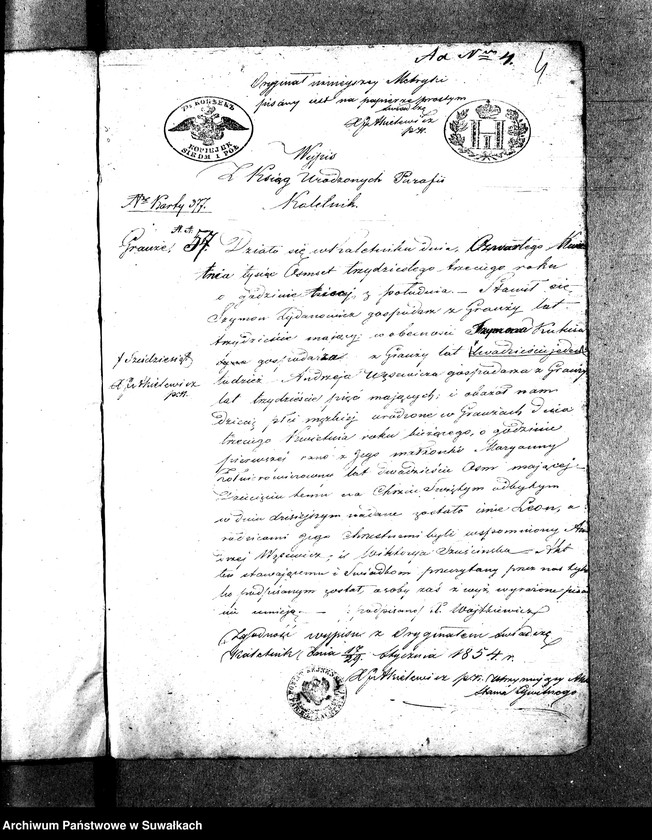 Ad Nrm 4.
Oryginał niniejszej Metryki
pisany iest na papierze prostym
świadczę
X Jutkiewicz
pzn.
75 KOPIEIEK
KOPIEJEK
SIEDM I PÓŁ
Wypis
Z Ksiąg Urodzonych Parafii
Kaletnik.
Nr Karty 37.
Grauże. 57. Działo się w Kaletniku dnia, Czwartego Kwie
tnia tysiąc Ośmset trzydziestego trzeciego roku
o godzinie trzeciej z południa. – Stawił się
Szymon gospodarz z Grauży lat
trzydzieście mający w obecności Szymona
gospodarza z Grauży lat
† Sześdziesiąt
X Jutkiewicz
pzn.
tudzież Andrzeja Wąsewicza gospodarza z Grauży
lat trzydzieście pięć mających; i okazał nam
dziecię płci męzkiej urodzone w Graużach dnia
trzeciego Kwietnia roku bieżącego, o godzinie
pierwszej rano z jego małżonki Maryanny
lat dwadzieście Ośm mającej.
Dziecięciu temu na Chrzcie Świętym odbytym
w dniu dzisiejszym nadane zostało imie Leon, a
rodzicami jego chrzestnemi byli wspomniony And
rzej Wąsewicz, i Wiktorya – Akt
ten stawającemu i Świadkom przeczytany przez nas tylko
podpisanym został, osoby zaś wyż wyrażone pisać
nie umieją. – podpisano X. Wojtkiewicz
Zgodność wypisu z Oryginałem świadczę
Kaletnik dnia 17/29 Stycznia 1854. r.
X Jutkiewicz pzn. Utrzymujący Akta
Stanu Cywilnego
Archiwum Państwowe w Suwałkach